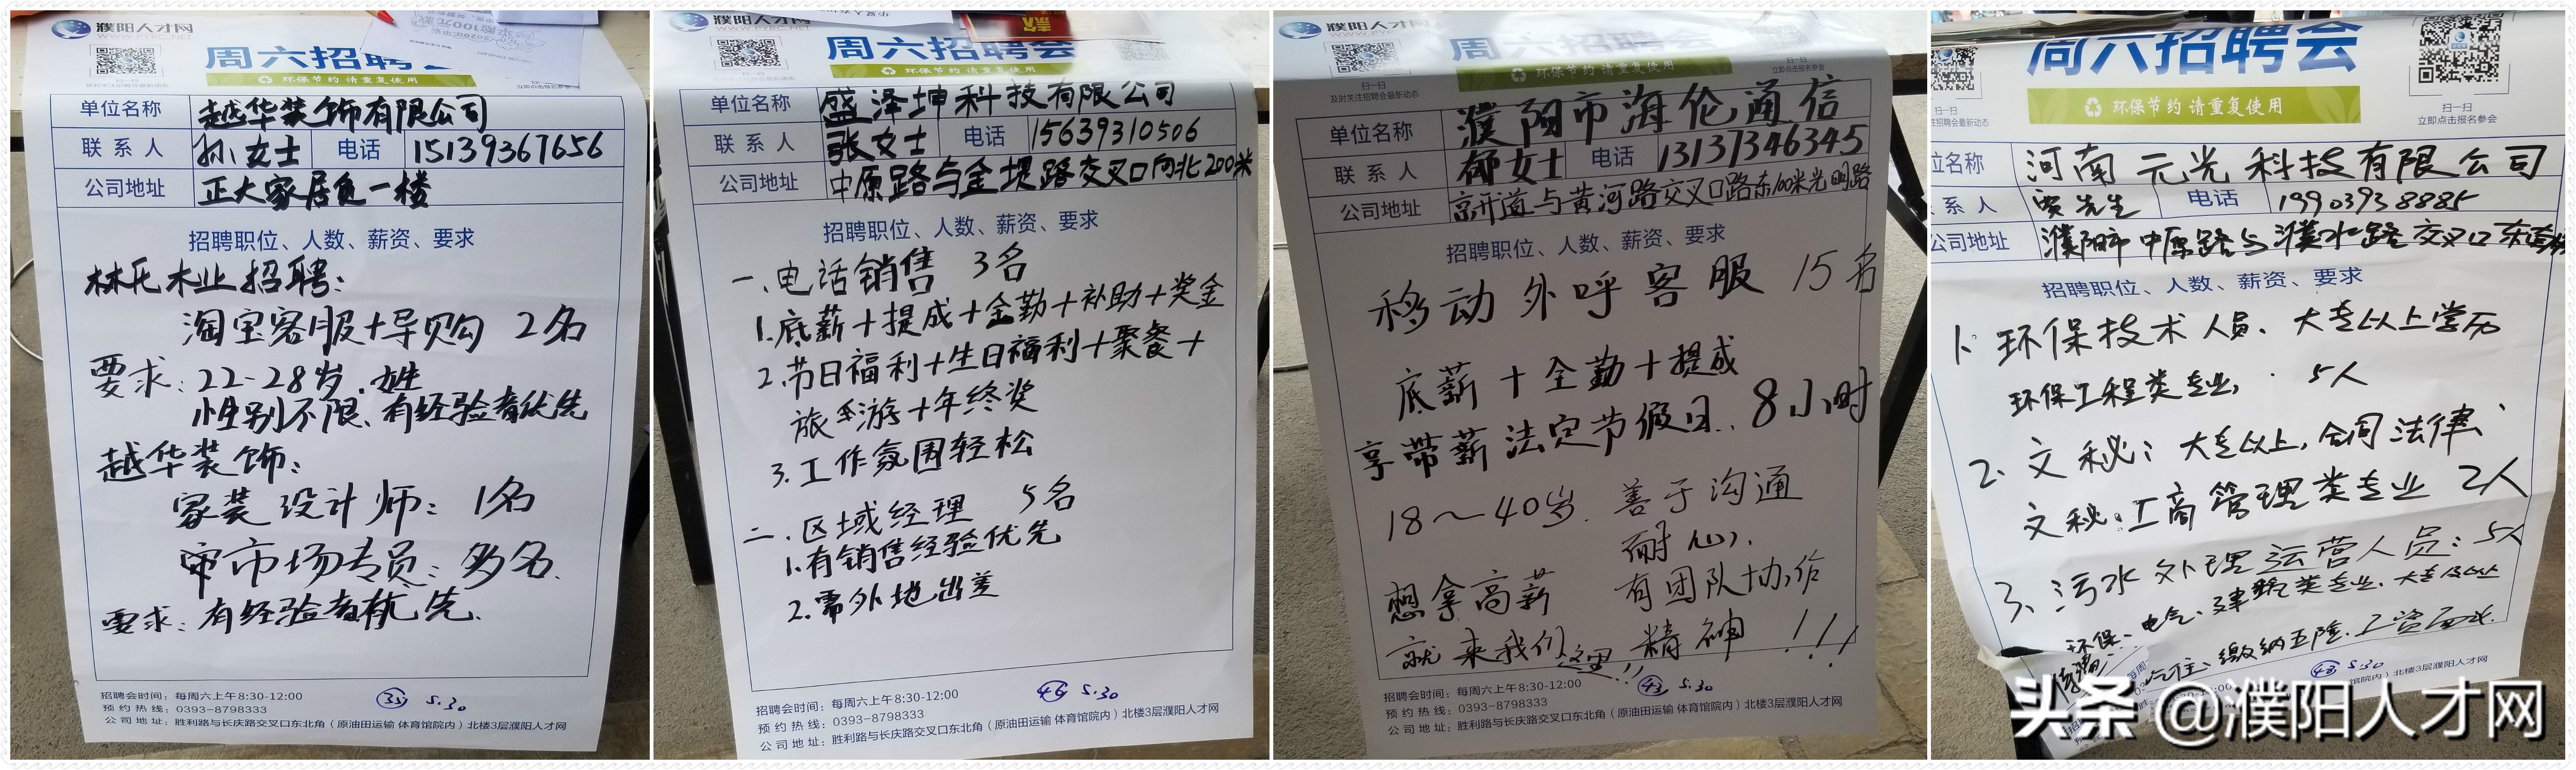 濮阳人才网
周六招聘会
环保节约 请重复使用
单位名称 越华装饰有限公司
联系人 孙女士 电话 15139367656
公司地址 正大家居负一楼
招聘职位、人数、薪资、要求
林氏木业招聘:
淘宝客服+导购 2名
要求:22-28岁、
性别不限、有经验者优先
越华装饰:
家装设计师: 1名
市场专员: 多名.
要求:有经验者优先.
招聘会时间:每周六上午8:30-12:00
35 5.30
预约热线:0393-8798333
公司地址:胜利路与长庆路交叉口东北角(原油田运输 体育馆院内)北楼3层濮阳人才网
濮阳人才网
周六招聘会
环保节约 请重复使用
单位名称 盛泽坤科技有限公司
联系人 张女士 电话 15639310506
公司地址 中原路与金堤路交叉口向北200米
招聘职位、人数、薪资、要求
一.电话销售 3名
1.底薪+提成+全勤+补助+奖金
2.节日福利+生日福利+聚餐+
旅游+年终奖
3.工作氛围轻松
二.区域经理 5名
1.有销售经验优先
2.需外地出差
招聘会时间:每周六上午8:30-12:00
46 5.30
预约热线:0393-8798333
公司地址:胜利路与长庆路交叉口东北角(原油田运输 体育馆院内)北楼3层濮阳人才网
濮阳人才网
扫一扫
及时关注招聘会最新动态
周六招聘会
环保节约 请重复使用
扫一扫
立即点击报名参会
单位名称 濮阳市海伦通信
联系人 郁女士 电话 13137346345
公司地址 高开道与黄河路交叉口路东100米光明路
招聘职位、人数、薪资、要求
移动外呼客服 15名
底薪+全勤+提成
享带薪法定节假日. 8小时
18~40岁. 善于沟通
耐心、
想拿高薪 有团队协作
就来我们这里!! 精神 !!!
招聘会时间:每周六上午8:30-12:00
43 5.30
预约热线:0393-8798333
公司地址:胜利路与长庆路交叉口东北角(原油田运输 体育馆院内)北楼3层濮阳人才网
周六招聘会
环保节约 请重复使用
扫一扫
扫一扫
立即点击报名参会
位名称 河南元光科技有限公司
系人 贾先生 电话 19903938885
公司地址 濮阳市中原路与濮水路交叉口东
招聘职位、人数、薪资、要求
1. 环保技术人员、大专以上学历
环保工程类专业, 5人
2. 文秘: 大专以上, 合同法律、
文秘、工商管理类专业 2人
3、污水处理运营人员: 5人
环保、电气、类专业、大专及以上
吃住、缴纳五险.工资面议.
48 5.30
北楼3层濮阳人才网
头条 @濮阳人才网